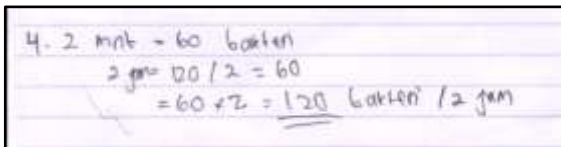 4. 2 mnt = 60 bakteri
2 jam 120 / 2 = 60
= 60 x 2 = 120 bakteri / 2 jam